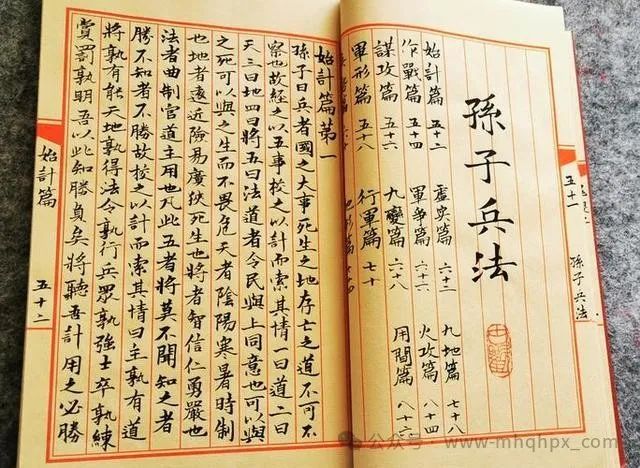 五十一
孫子兵法
孫子兵法
始計篇 五十二 虛實篇 六十二 九地篇 七十八
作戰篇 五十四 軍爭篇 六十六 火攻篇 八十四
謀攻篇 五十六 九變篇 六十八 用間篇 八十六
軍形篇 五十八 行軍篇 七十
始計篇第一
孫子曰兵者國之大事死生之地存亡之道不可不
察也故經之以五事校之以計而索其情一曰道二曰
天三曰地四曰將五曰法道者令民與上同意也可以與
之死可以與之生而不畏危天者陰陽寒暑時制
也地者遠近險易廣狹死生也將者智信仁勇嚴也
法者曲制官道主用也凡此五者將莫不聞知之者
勝不知者不勝故校之以計而索其情曰主孰有道
將孰有能天地孰得法令孰行兵眾孰強士卒孰練
賞罰孰明吾以此知勝負矣將聽吾計用之必勝
始計篇
五十二
公众号 www-mhqhpx_com